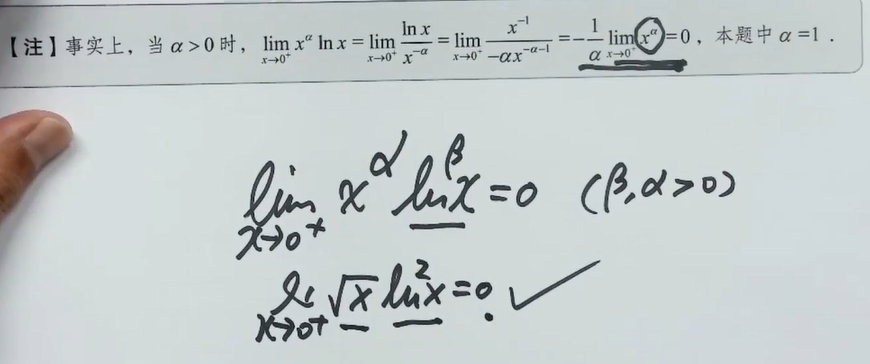 【注】事实上，当 α>0 时，lim_{x→0⁺} x^α ln x = lim_{x→0⁺} \frac{ln x}{x^{-α}} = lim_{x→0⁺} \frac{x^{-1}}{-αx^{-α-1}} = -\frac{1}{α} lim_{x→0⁺} x^α = 0，本题中 α=1．
lim_{x→0⁺} x^α ln^β x = 0 (β,α>0)
li_{x→0+} √x ln² x = 0. ✓